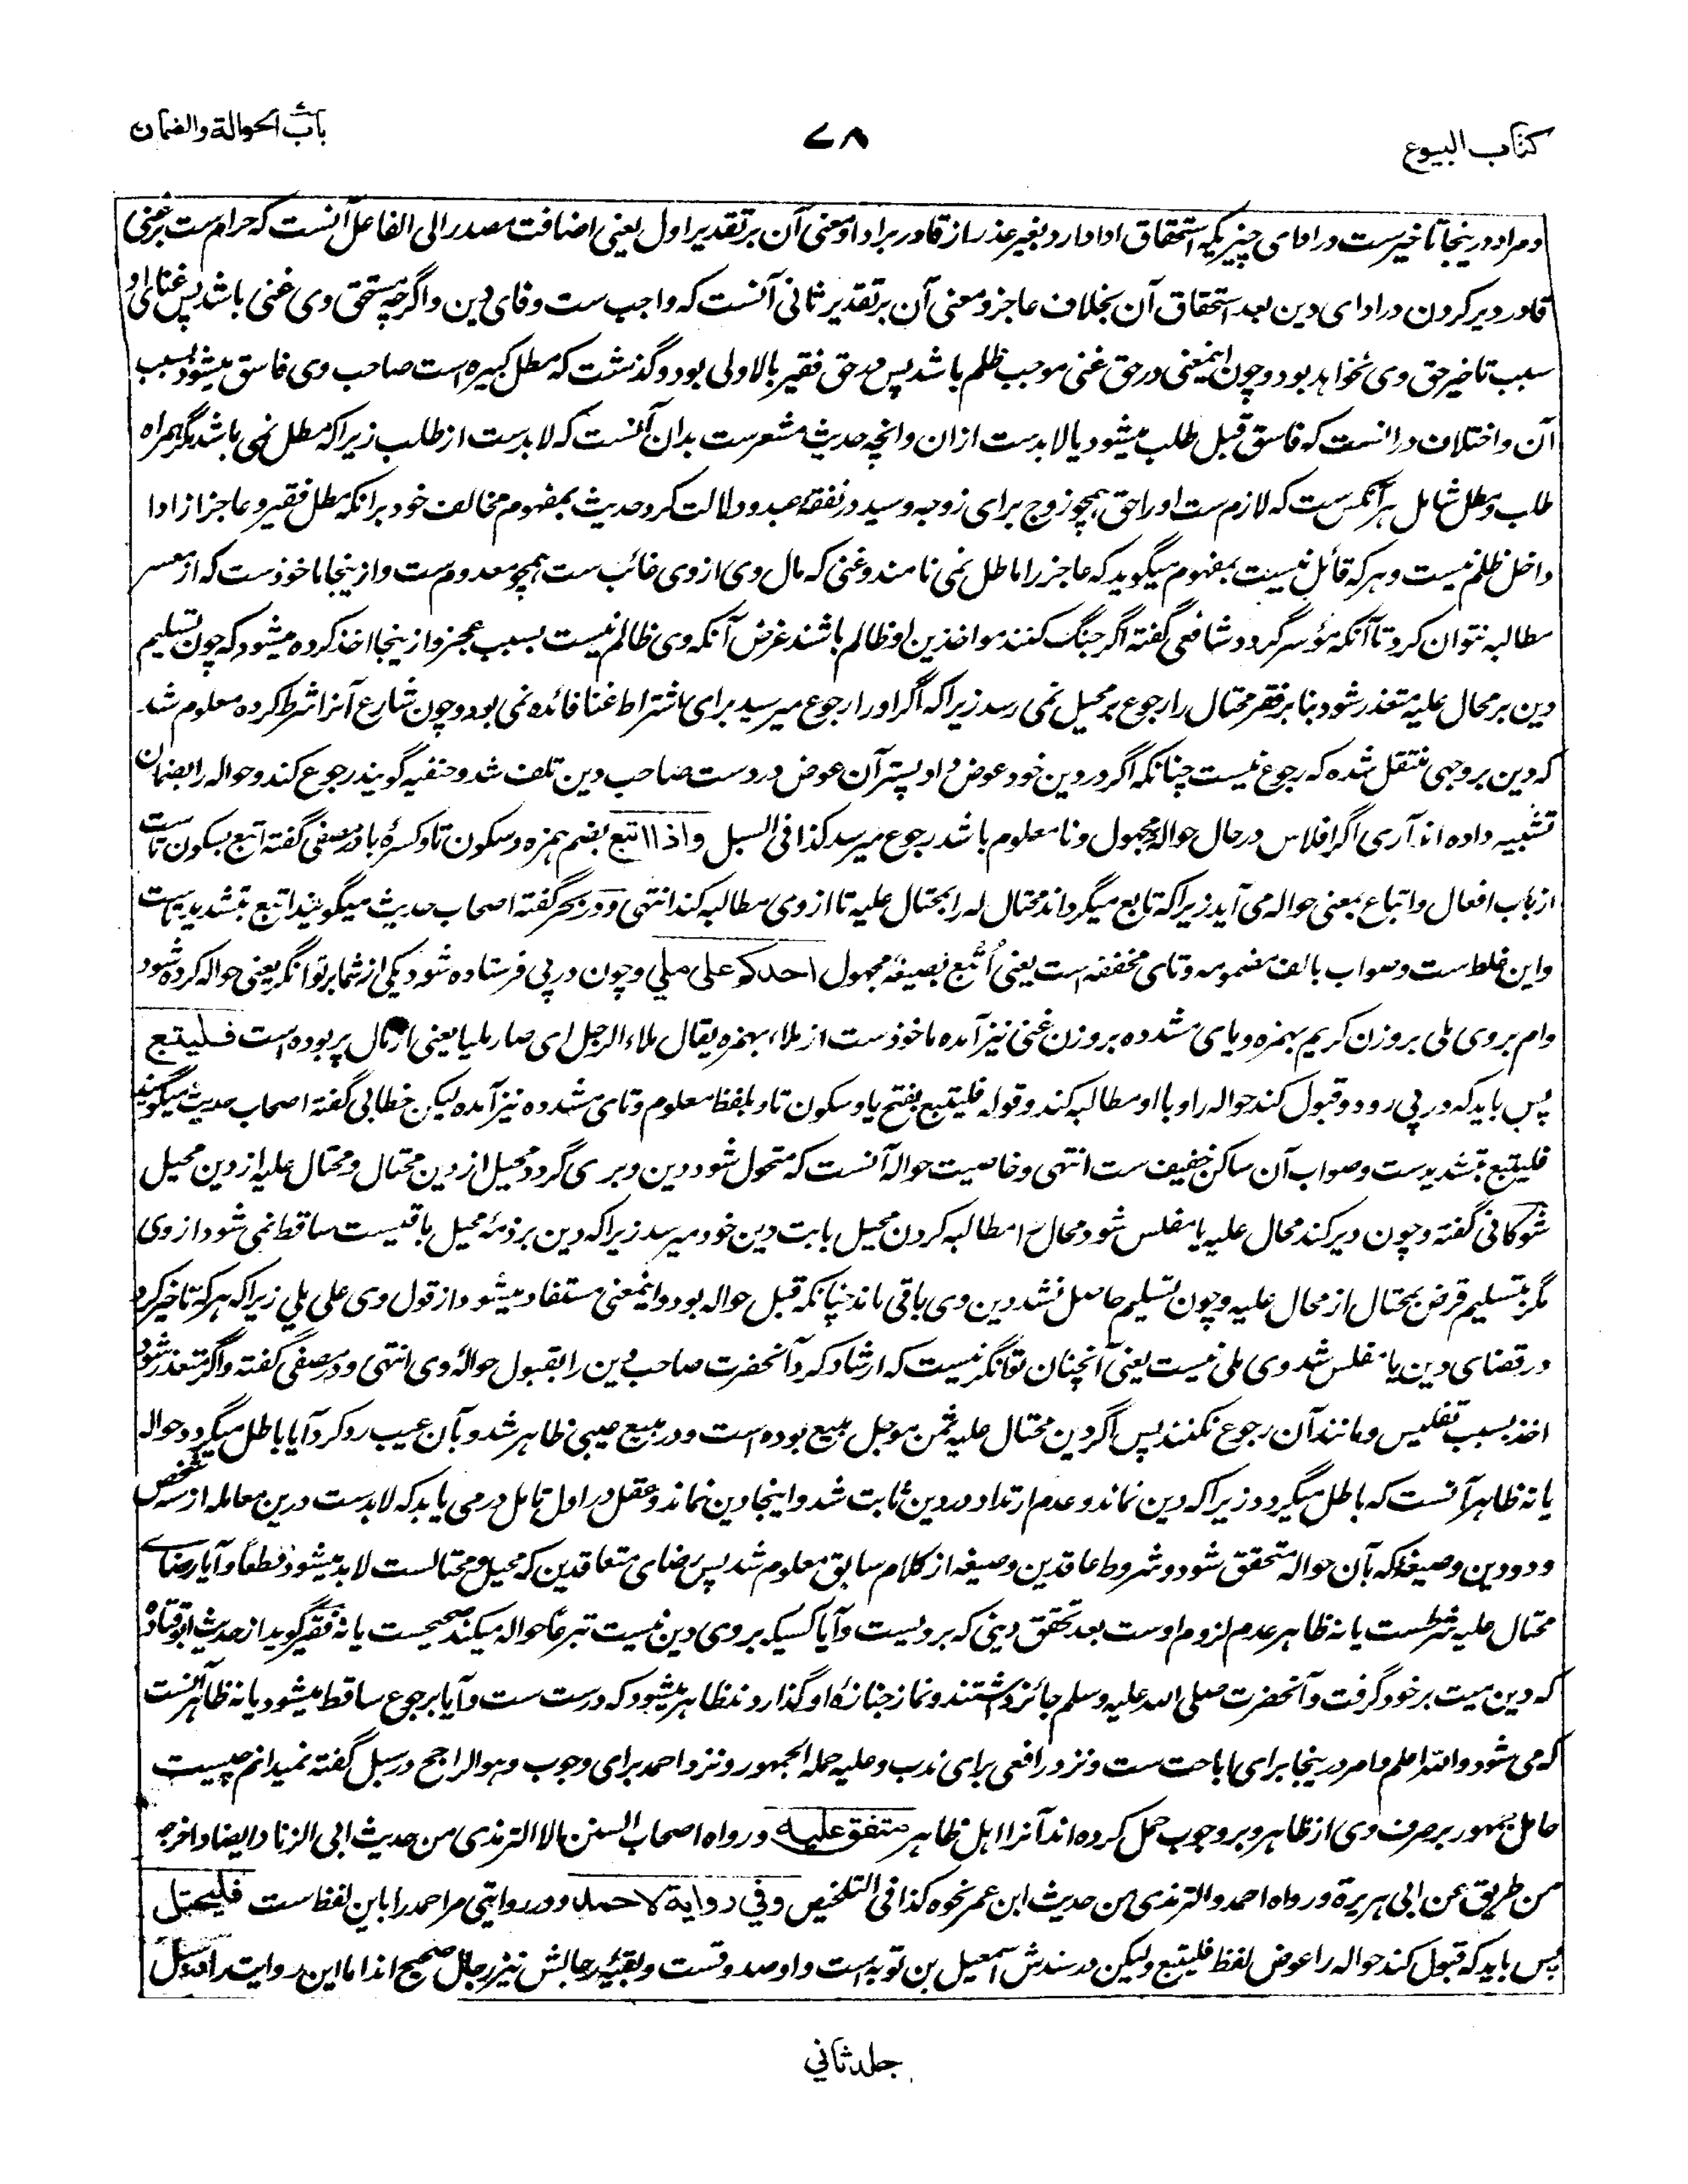 کتاب البیوع
۷۸
باب الحوالة والضمان
ومراد درینجا تاخیرست در ادای چیزیکه استحقاق ادا دارد بغیر عذر از قادر بر ادا و معنی آن بر تقدیر اول یعنی اضافت مصدر الی الفاعل آنست که حرام ست بر غنی
قادر دیر کردن در ادای دین بعد استحقاق آن بخلاف عاجز و معنی آن بر تقدیر ثانی آنست که واجب ست وفای دین و اگرچه مستحق وی غنی باشد پس غنای او
سبب تاخیر حق وی نخواهد بود و چون اینمعنی در حق غنی موجب ظلم باشد پس در حق فقیر بالاولی بود و گذشت که مطل کبیره است صاحب وی فاسق میشود بسبب
آن و اختلاف درانست که فاسق قبل طلب میشود یا لابدست ازان و انچه حدیث مشعرست بدان آنست که لابدست از طلب زیرا که مطل نمی باشد مگر همراه
طلب و مطل شامل هر آنکس ست که لازم ست او را حق همچو زوج برای زوجه و سید در نفقه عبد و دلالت کرد حدیث بمفهوم مخالف خود برانکه مطل فقیر و عاجز از ادا
داخل ظلم نیست و هر که قائل نیست بمفهوم میگوید که عاجز را ماطل نمی نامند و غنی که مال وی از وی غائب ست همچو معدوم ست و ازینجا ماخوذست که از معسر
مطالبه نتوان کرد تا آنکه موسر گردد شافعی گفته اگر جنگ کنند مواخذین او ظالم باشند غرض آنکه وی ظالم نیست بسبب عجز و ازینجا اخذ کرده میشود که چون تسلیم
دین بر محال علیه متعذر شود بنا بر فقر محتال را رجوع بر محیل نمی رسد زیرا که اگر او را رجوع میرسید برای اشتراط غنا فائده نمی بود و چون شارع آنرا شرط کرده معلوم شد
که دین بر وجهی منتقل شده که رجوع نیست چنانکه اگر در دین خود عوض داد پستر آن عوض در دست صاحب دین تلف شد و حنفیه گویند رجوع کند و حواله را بضمان
تشبیه داده اند آری اگر افلاس در حال حواله مجهول و نامعلوم باشد رجوع میرسد کذا فی السبل واذا اتبع بضم همزه و سکون تا و کسرهٔ با در مصفی گفته اتبع بسکون تاست
از باب افعال و اتباع بمعنی حواله می آید زیرا که تابع میگرداند محتال له را بمحتال علیه تا از وی مطالبه کند انتهی و در بحر گفته اصحاب حدیث میگویند اتبع بتشدید تاست
و این غلط ست و صواب بالف مضمومه و تای مخففه است یعنی اُتْبِع بصیغهٔ مجهول احدکم علی ملي و چون در پی فرستاده شود یکی از شما بر توانگر یعنی حواله کرده شود
وام بر وی ملی بر وزن کریم بهمزه و یای مشدده بر وزن غنی نیز آمده ماخوذست از ملاء بهمزه یقال ملاء الرجل ای صار ملیا یعنی از مال پر بوده است فلیتبع
پس باید که در پی رود و قبول کند حواله را و با او مطالبه کند و قوله فلیتبع بفتح یا و سکون تا و بلفظ معلوم و تای مشدده نیز آمده لیکن خطابی گفته اصحاب حدیث میگویند
فلیتبع بتشدیدست و صواب آن ساکن خفیف ست انتهی و خاصیت حواله آنست که متحول شود دین و بری گردد محیل از دین محتال و محتال علیه از دین محیل
شوکانی گفته و چون دیر کند محال علیه یا مفلس شود محال را مطالبه کردن محیل بابت دین خود میرسد زیرا که دین بر ذمهٔ محیل باقیست ساقط نمی شود از وی
مگر بتسلیم قرض بمحتال از محال علیه و چون تسلیم حاصل نشد دین وی باقی ماند چنانکه قبل حواله بود و اینمعنی مستفاد میشود از قول وی علی ملي زیرا که هر که تاخیر کرد
در قضای دین یا مفلس شد وی ملی نیست یعنی آنچنان توانگر نیست که ارشاد کرد آنحضرت صاحب دین را بقبول حوالهٔ وی انتهی و در مصفی گفته و اگر متعذر شود
اخذ بسبب تفلیس و مانند آن رجوع نکنند پس اگر دین محتال علیه ثمن موجل مبیع بوده است و در مبیع عیبی ظاهر شد و بآن عیب رد کرد آیا باطل میگردد حواله
یا نه ظاهر آنست که باطل میگردد زیرا که دین نماند و عدم ارتداد در دین ثابت شد و اینجا دین نماند و عقل در اول تامل درمی یابد که لابدست درین معامله از سه شخص
و دو دین و صیغهٔ که بآن حواله متحقق شود و شروط عاقدین و صیغه از کلام سابق معلوم شد پس رضای متعاقدین که محیل و محتالست لابد میشود قطعا و آیا رضای
محتال علیه شرطست یا نه ظاهر عدم لزوم اوست بعد تحقق دینی که بر ویست و آیا کسیکه بر وی دین نیست تبرعا حواله میکند صحیحست یا نه فقیر گوید از حدیث ابوقتاده
که دین میت بر خود گرفت و آنحضرت صلی الله علیه وسلم جائز داشتند و نماز جنازهٔ او گذاردند ظاهر میشود که درست ست و آیا برجوع ساقط میشود یا نه ظاهر آنست
که می شود والله اعلم و امر درینجا برای اباحت ست و نزد رافعی برای ندب و علیه حمله الجمهور و نزد احمد برای وجوب و هو الراجح در سبل گفته نمیدانم چیست
حامل جمهور بر صرف وی از ظاهر و بر وجوب حمل کرده اند آنرا اهل ظاهر متفق علیه و رواه اصحاب السنن الا الترمذی من حدیث ابی الزناد ایضا و اخرجه
من طریق عن ابی هریرة و رواه احمد والترمذی من حدیث ابن عمر نحوه کذا فی التلخیص وفي رواية لاحمد و در روایتی مر احمد را باین لفظ ست فلیحتل
پس باید که قبول کند حواله را عوض لفظ فلیتبع و لیکن در سندش اسمعیل بن توبه است و او صدوقست و بقیهٔ رجالش نیز رجال صحیح اند اما این روایت را
جلد ثاني